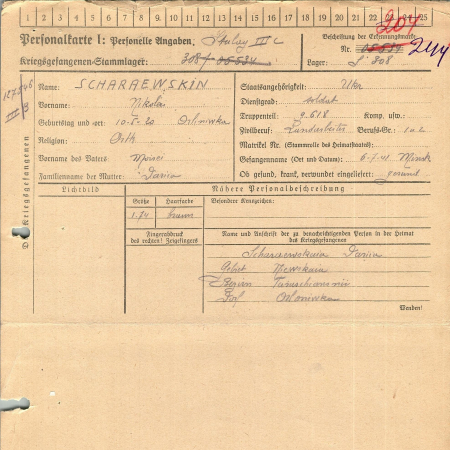 1 2 3 4 5 6 7 8 9 10 11 12 13 14 15 16 17 18 19 20 21 22 23 24 25
Personalkarte I: Personelle Angaben, Stalag III C
Beschriftung der Erkennungsmarke
204
Nr. 05534 244
Kriegsgefangenen-Stammlager: 308/ 05534
Lager: S 308
Des Kriegsgefangenen
Name: SCHARAEWSKIN
Staatsangehörigkeit: Ukr
Vorname: Nikolai
Dienstgrad: soldat
Geburtstag und -ort: 10.5.20 Orloniwka
Truppenteil: 9.618 Komp. usw.:
Religion: Orth
Zivilberuf: Landarbeiter Berufs-Gr.: 102
Matrikel Nr. (Stammrolle des Heimatstaates):
Vorname des Vaters: Moisei
Gefangennahme (Ort und Datum): 6-7-41 Minsk
Familienname der Mutter: Daria
Ob gesund, krank, verwundet eingeliefert: gesund
Lichtbild
Nähere Personalbeschreibung
Größe Haarfarbe Besondere Kennzeichen:
1.74 braun
Fingerabdruck
des rechten! Zeigefingers
Name und Anschrift der zu benachrichtigenden Person in der Heimat
des Kriegsgefangenen
Daria
Gebit
Dorf Orloniwka
Wenden!